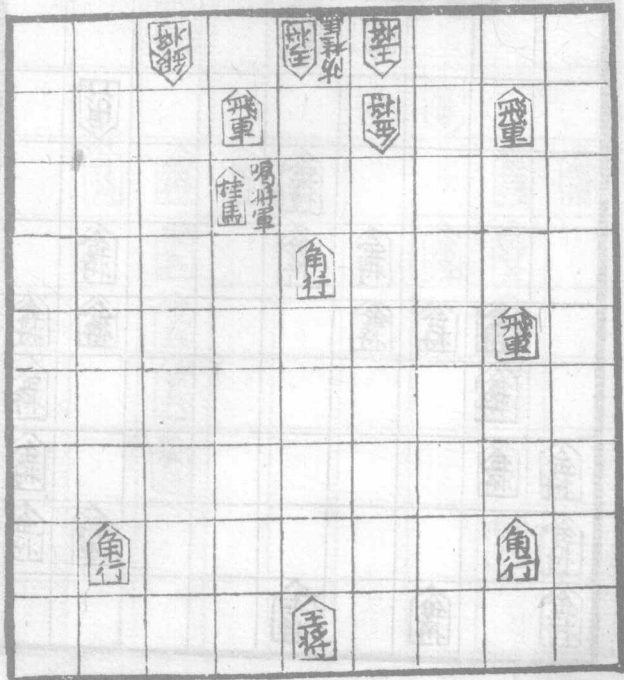 銀将
王将
防桂馬
王将
飛車
金将
飛車
桂馬
鳴将軍
角行
飛車
角行
角行
王将